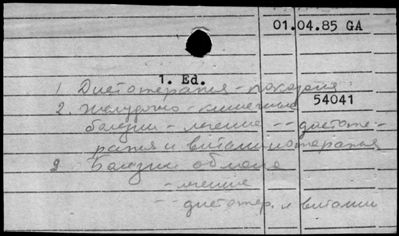 01.04.85 GA
1. Ed.
1. Диетотерапия -
2. Желудочно - кишечные
54041
болезни - лечение -- диетоте-
рапия и витаминотерапия
3. Болезни обмена
- лечение
-- диетотер. и витамин